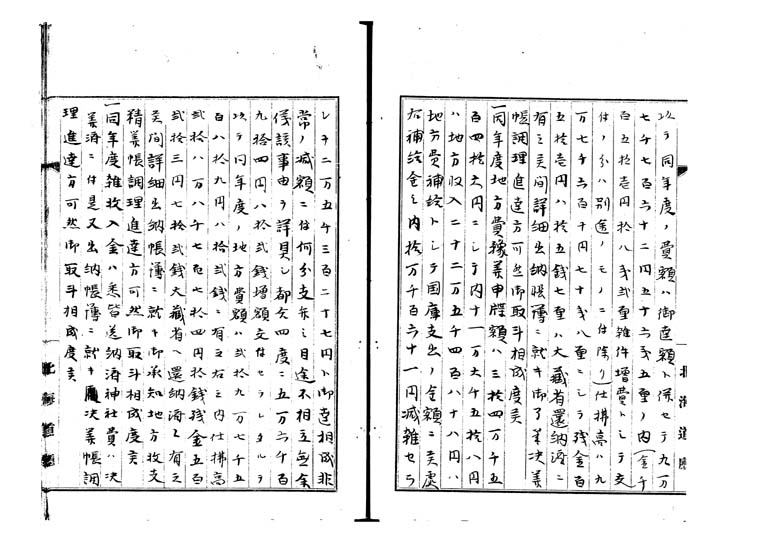 以テ同年度ノ費額ハ御達額ト併セテ九万
七千七百六十二円五十六戋五厘ノ内(金千
百五拾壱円拾八戋弐厘雑件増費トシテ交
付ノ分ハ別途ノモノニ付除ク)仕拂高ハ九
万七千六百十円七十戋八厘ニシテ残金百
五拾壱円八拾五銭七厘ハ大藏省還納済ニ
有之其間詳細出納帳簿ニ就キ御了若決算
帳調理進達方可然御取斗相成度候
一同年度地方費豫算申牒額ハ三拾四万千五
百四拾六円ニシテ内十一万六千五拾八円
ハ地方収入二十二万五千四百八十八円ハ
地方費補給トシテ国庫支出ノ金額ニ候處
右補給金之内拾万千百六十一円減雜セラ
レ十二万五千三百二十七円ト御達相成非
常ノ減額ニ付何分支弁之目途不相立無余
儀該事由ヲ詳具シ都合四度ニ五万六千百
九拾四円八拾弐銭増額交付セラレタルヲ
以テ同年度ノ地方費額ハ弐拾九万七千五
百八拾九円八拾弐銭ニ有之右之内仕拂高
弐拾八万八千七百七拾四円拾銭残金五百
弐拾三円七拾弐銭大藏省ヘ還納済ニ有之
其間詳細出納帳簿ニ就キ御承知地方收支
精算帳調理進達方可然御取斗相成度候
一同年度雜收入金ハ悉皆送納済神社費ハ決
算済ニ付是又出納帳簿ニ就キ決算帳調
理進達方可然御取斗相成度候
北海道廳
北海道廳